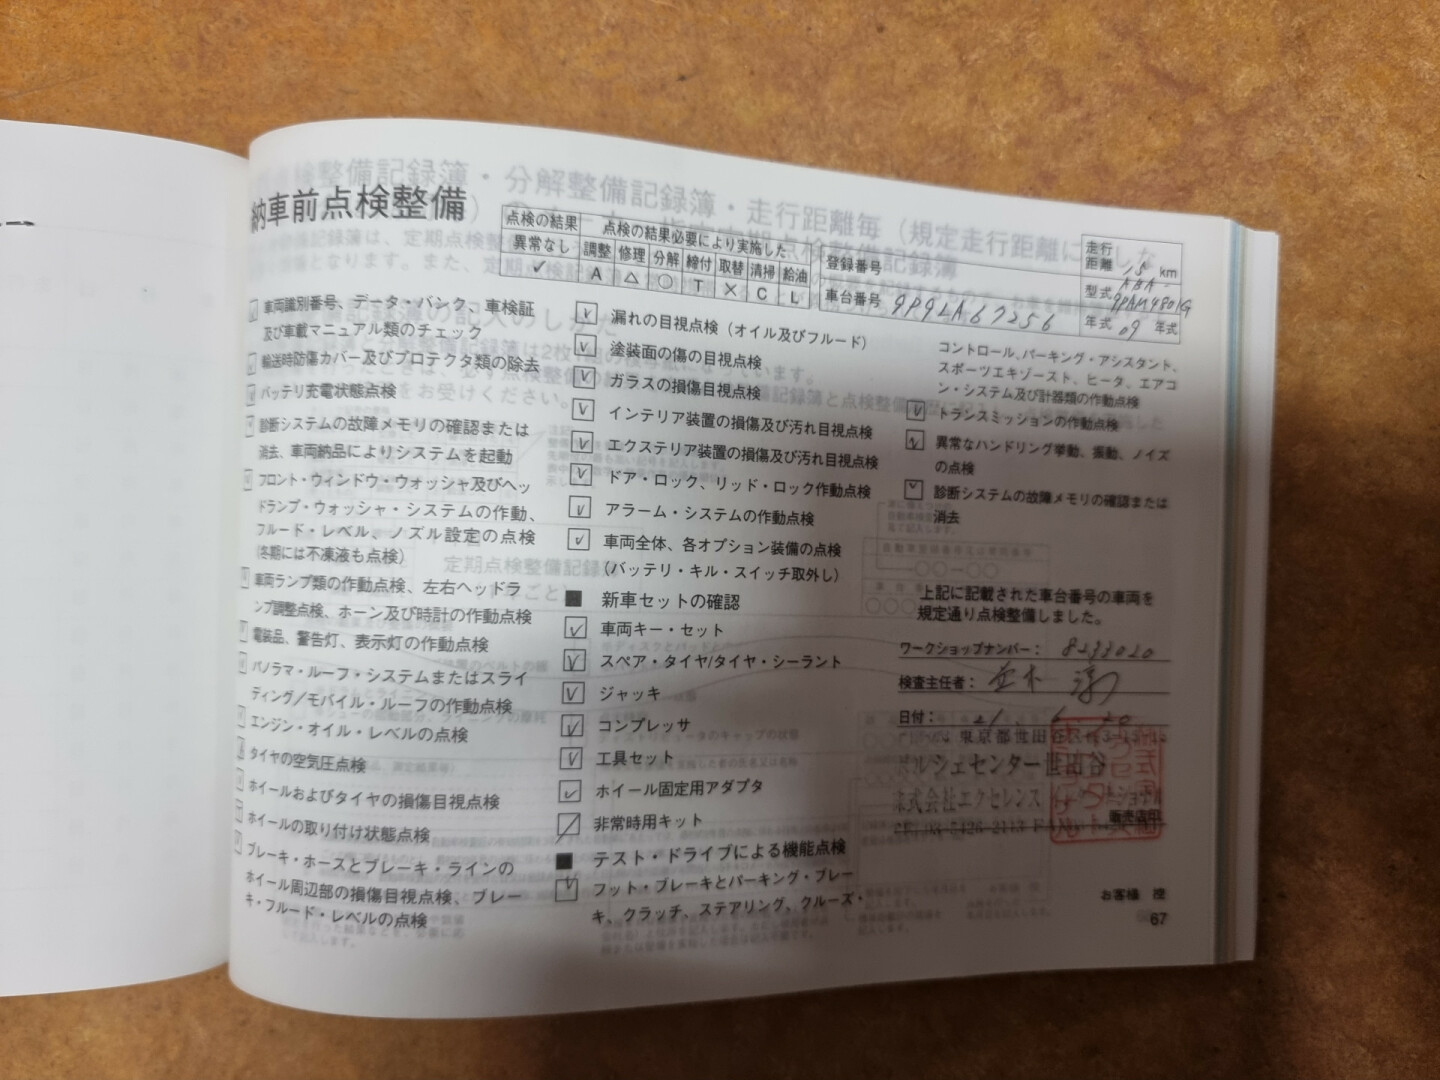 納車前点検整備
点検の結果 点検の結果必要により実施した
異常なし 調整 修理 分解 締付 取替 清掃 給油
✓ A △ ○ T × C L
登録番号
車台番号 9P9LA67256
走行距離 15 km
型式 ABA-9PAM4801G
年式 09 年式
車両識別番号、データ・バンク、車検証
及び車載マニュアル類のチェック
輸送時防傷カバー及びプロテクタ類の除去
バッテリ充電状態点検
診断システムの故障メモリの確認または
消去、車両納品によりシステムを起動
フロント・ウィンドウ・ウォッシャ及びヘッ
ドランプ・ウォッシャ・システムの作動、
フルード・レベル、ノズル設定の点検
(冬期には不凍液も点検)
車両ランプ類の作動点検、左右ヘッドラ
ンプ調整点検、ホーン及び時計の作動点検
電装品、警告灯、表示灯の作動点検
パノラマ・ルーフ・システムまたはスライ
ディング/モバイル・ルーフの作動点検
エンジン・オイル・レベルの点検
タイヤの空気圧点検
ホイールおよびタイヤの損傷目視点検
ホイールの取り付け状態点検
ブレーキ・ホースとブレーキ・ラインの
ホイール周辺部の損傷目視点検、ブレー
キ・フルード・レベルの点検
漏れの目視点検(オイル及びフルード)
塗装面の傷の目視点検
ガラスの損傷目視点検
インテリア装置の損傷及び汚れ目視点検
エクステリア装置の損傷及び汚れ目視点検
ドア・ロック、リッド・ロック作動点検
アラーム・システムの作動点検
車両全体、各オプション装備の点検
(バッテリ・キル・スイッチ取外し)
■ 新車セットの確認
車両キー・セット
スペア・タイヤ/タイヤ・シーラント
ジャッキ
コンプレッサ
工具セット
ホイール固定用アダプタ
非常時用キット
■ テスト・ドライブによる機能点検
フット・ブレーキとパーキング・ブレー
キ、クラッチ、ステアリング、クルーズ・
コントロール、パーキング・アシスタント、
スポーツエキゾースト、ヒータ、エアコ
ン・システム及び計器類の作動点検
トランスミッションの作動点検
異常なハンドリング挙動、振動、ノイズ
の点検
診断システムの故障メモリの確認または
消去
上記に記載された車台番号の車両を
規定通り点検整備しました。
ワークショップナンバー: 8233020
検査主任者:
日付: 21 6
東京都世田谷区
ポルシェセンター世田谷
株式会社エクセレンス
販売店印
お客様 控
67